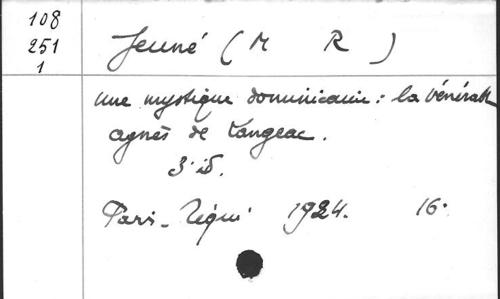 108
251
1
Jeuné (M R)
une mystique dominicaine : la vénérable
agnès de Langeac.
3º éd.
Paris - Téqui 1924. 16º